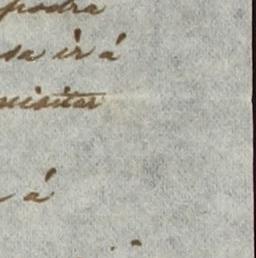 podra
sa ir á
uisitar
á